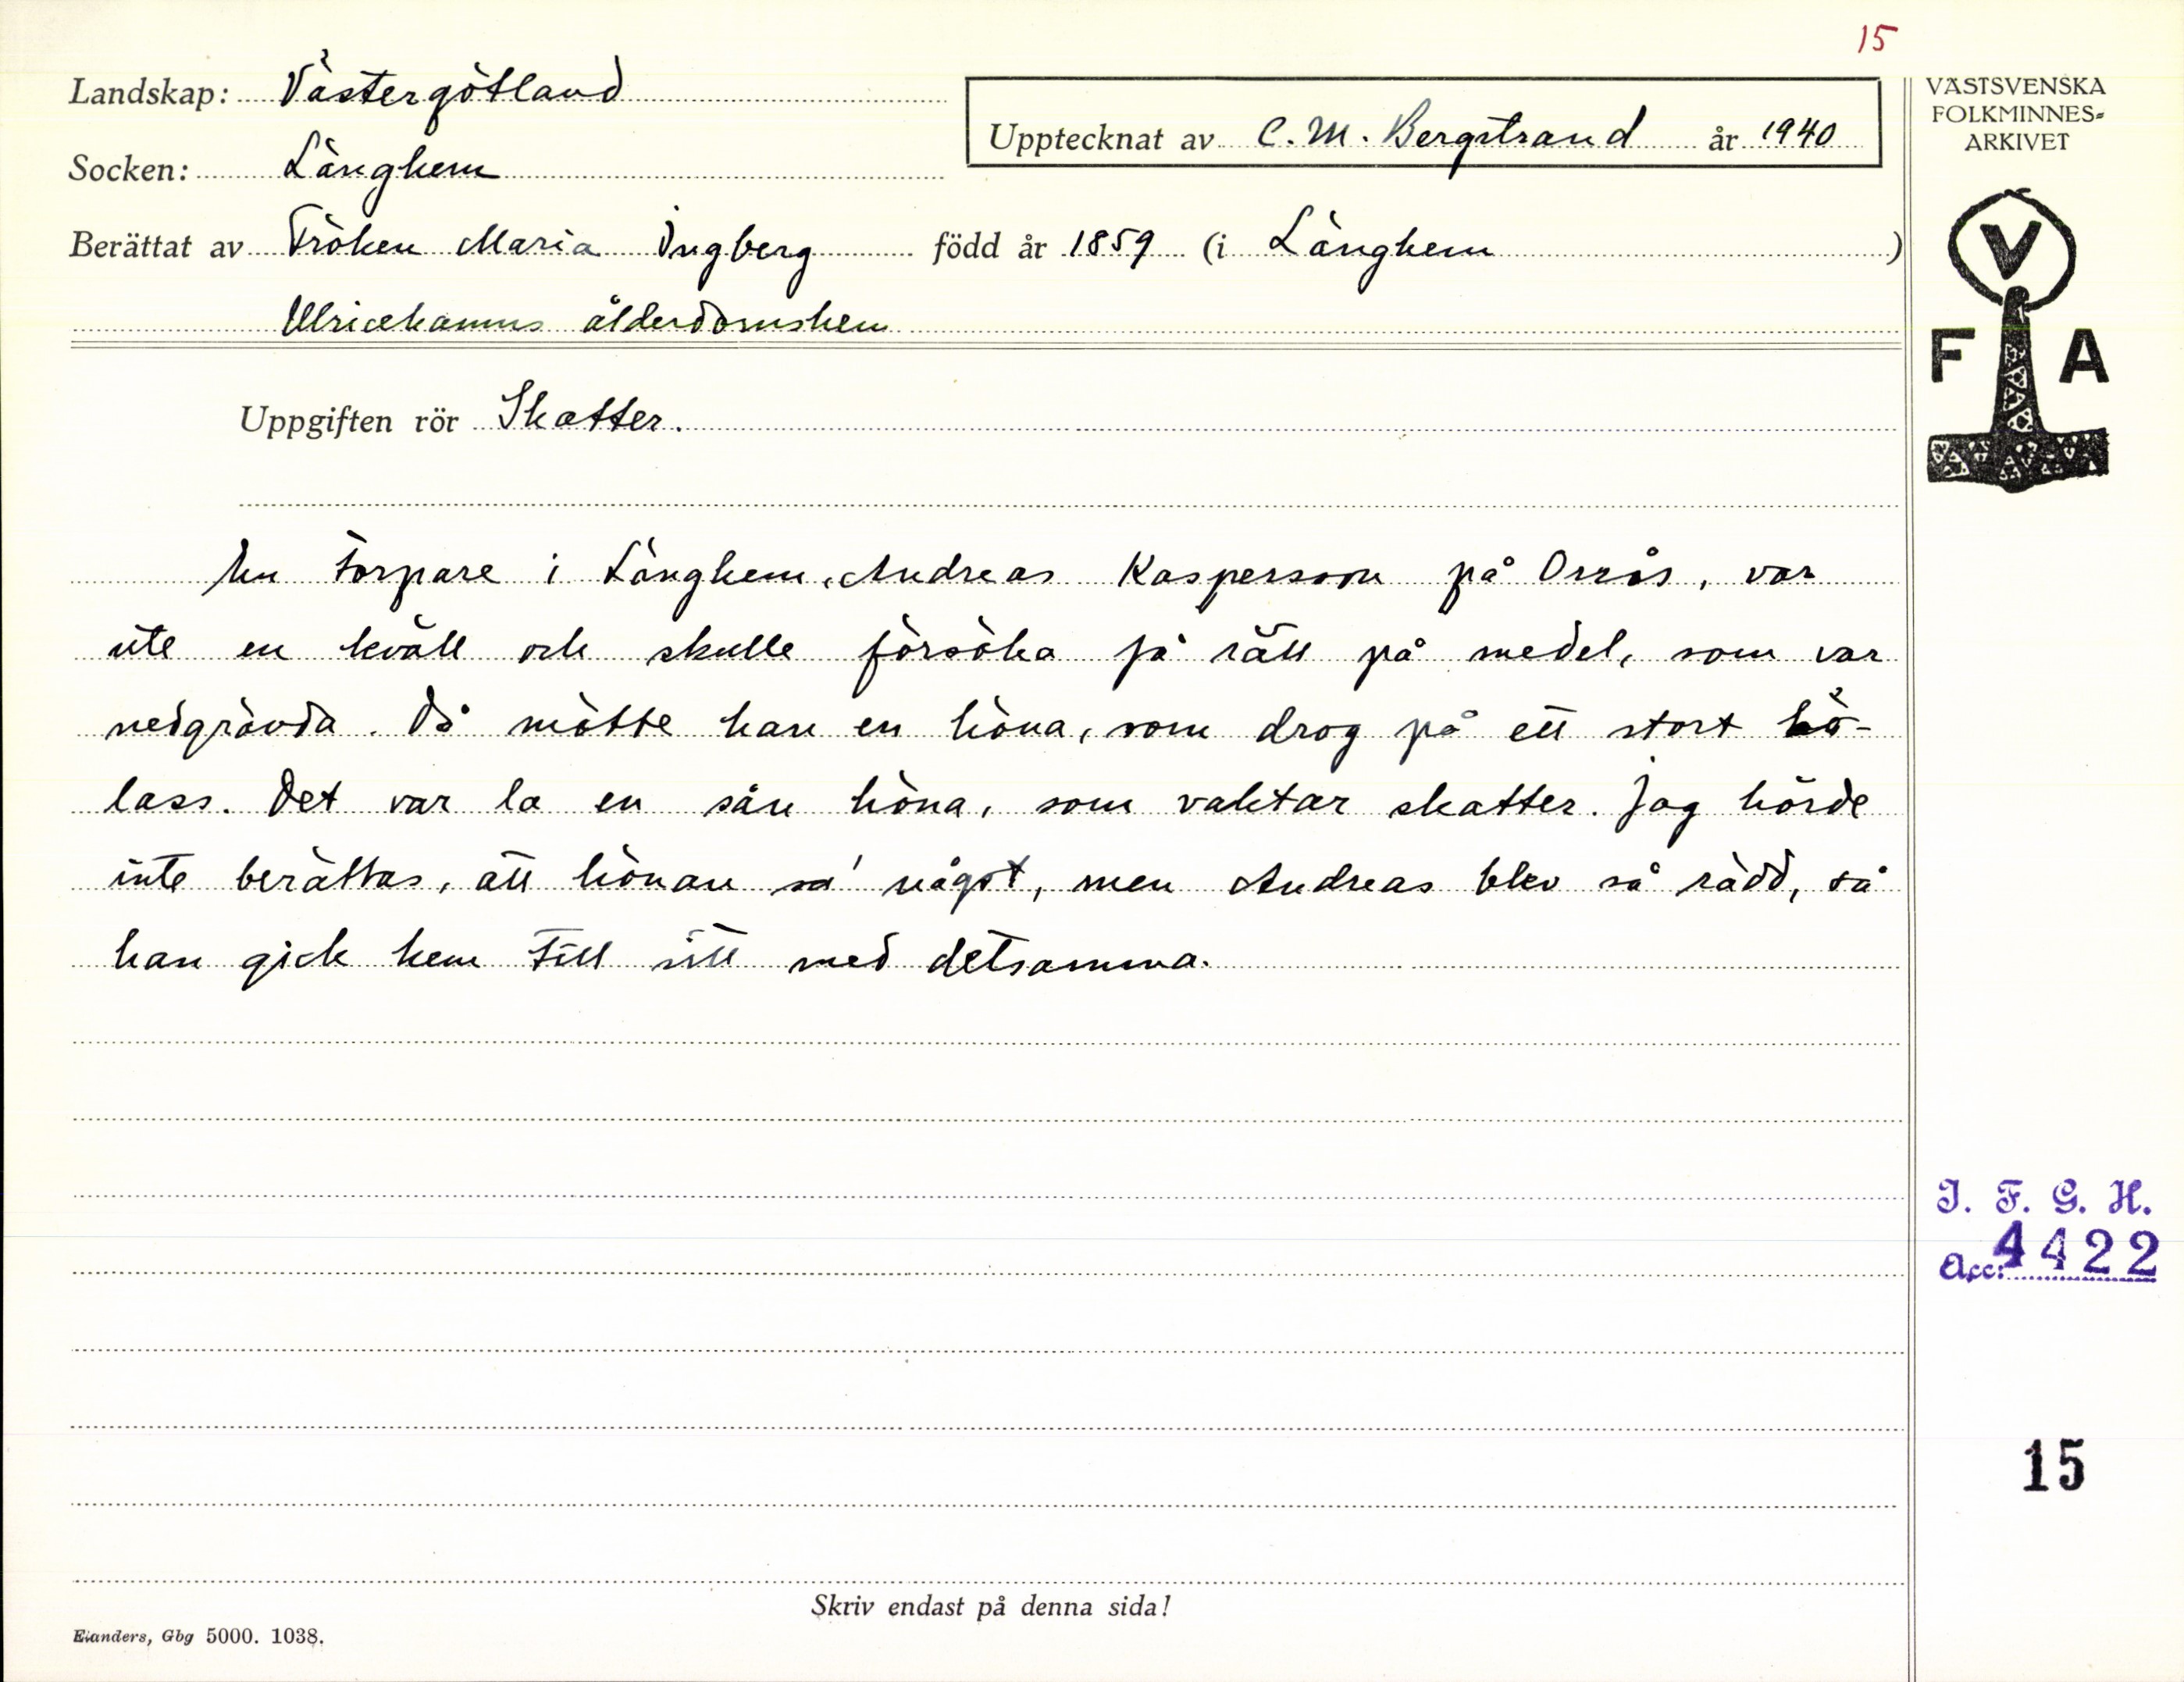 15
Landskap: Västergötland
Upptecknat av C. M. Bergstrand år 1940
VÄSTSVENSKA
FOLKMINNES-
ARKIVET
Socken: Länghem
Berättat av Fröken Maria Ingberg född år 1859 (i Länghem )
Ulricehamns ålderdomshem
V
F A
Uppgiften rör Skatter.
En torpare i Länghem, Andreas Kaspersson på Orrås, var
ute en kväll och skulle försöka få rätt på medel, som var
nedgrävda. Då mötte han en höna, som drog på ett stort hö-
lass. Det var la en sån höna, som vaktar skatter. Jag hörde
inte berättas, att hönan sa' något, men Andreas blev så rädd, så
han gick hem till sitt med detsamma.
I. F. G. H.
Acc: 4422
15
Skriv endast på denna sida!
Elanders, Gbg 5000. 1038.